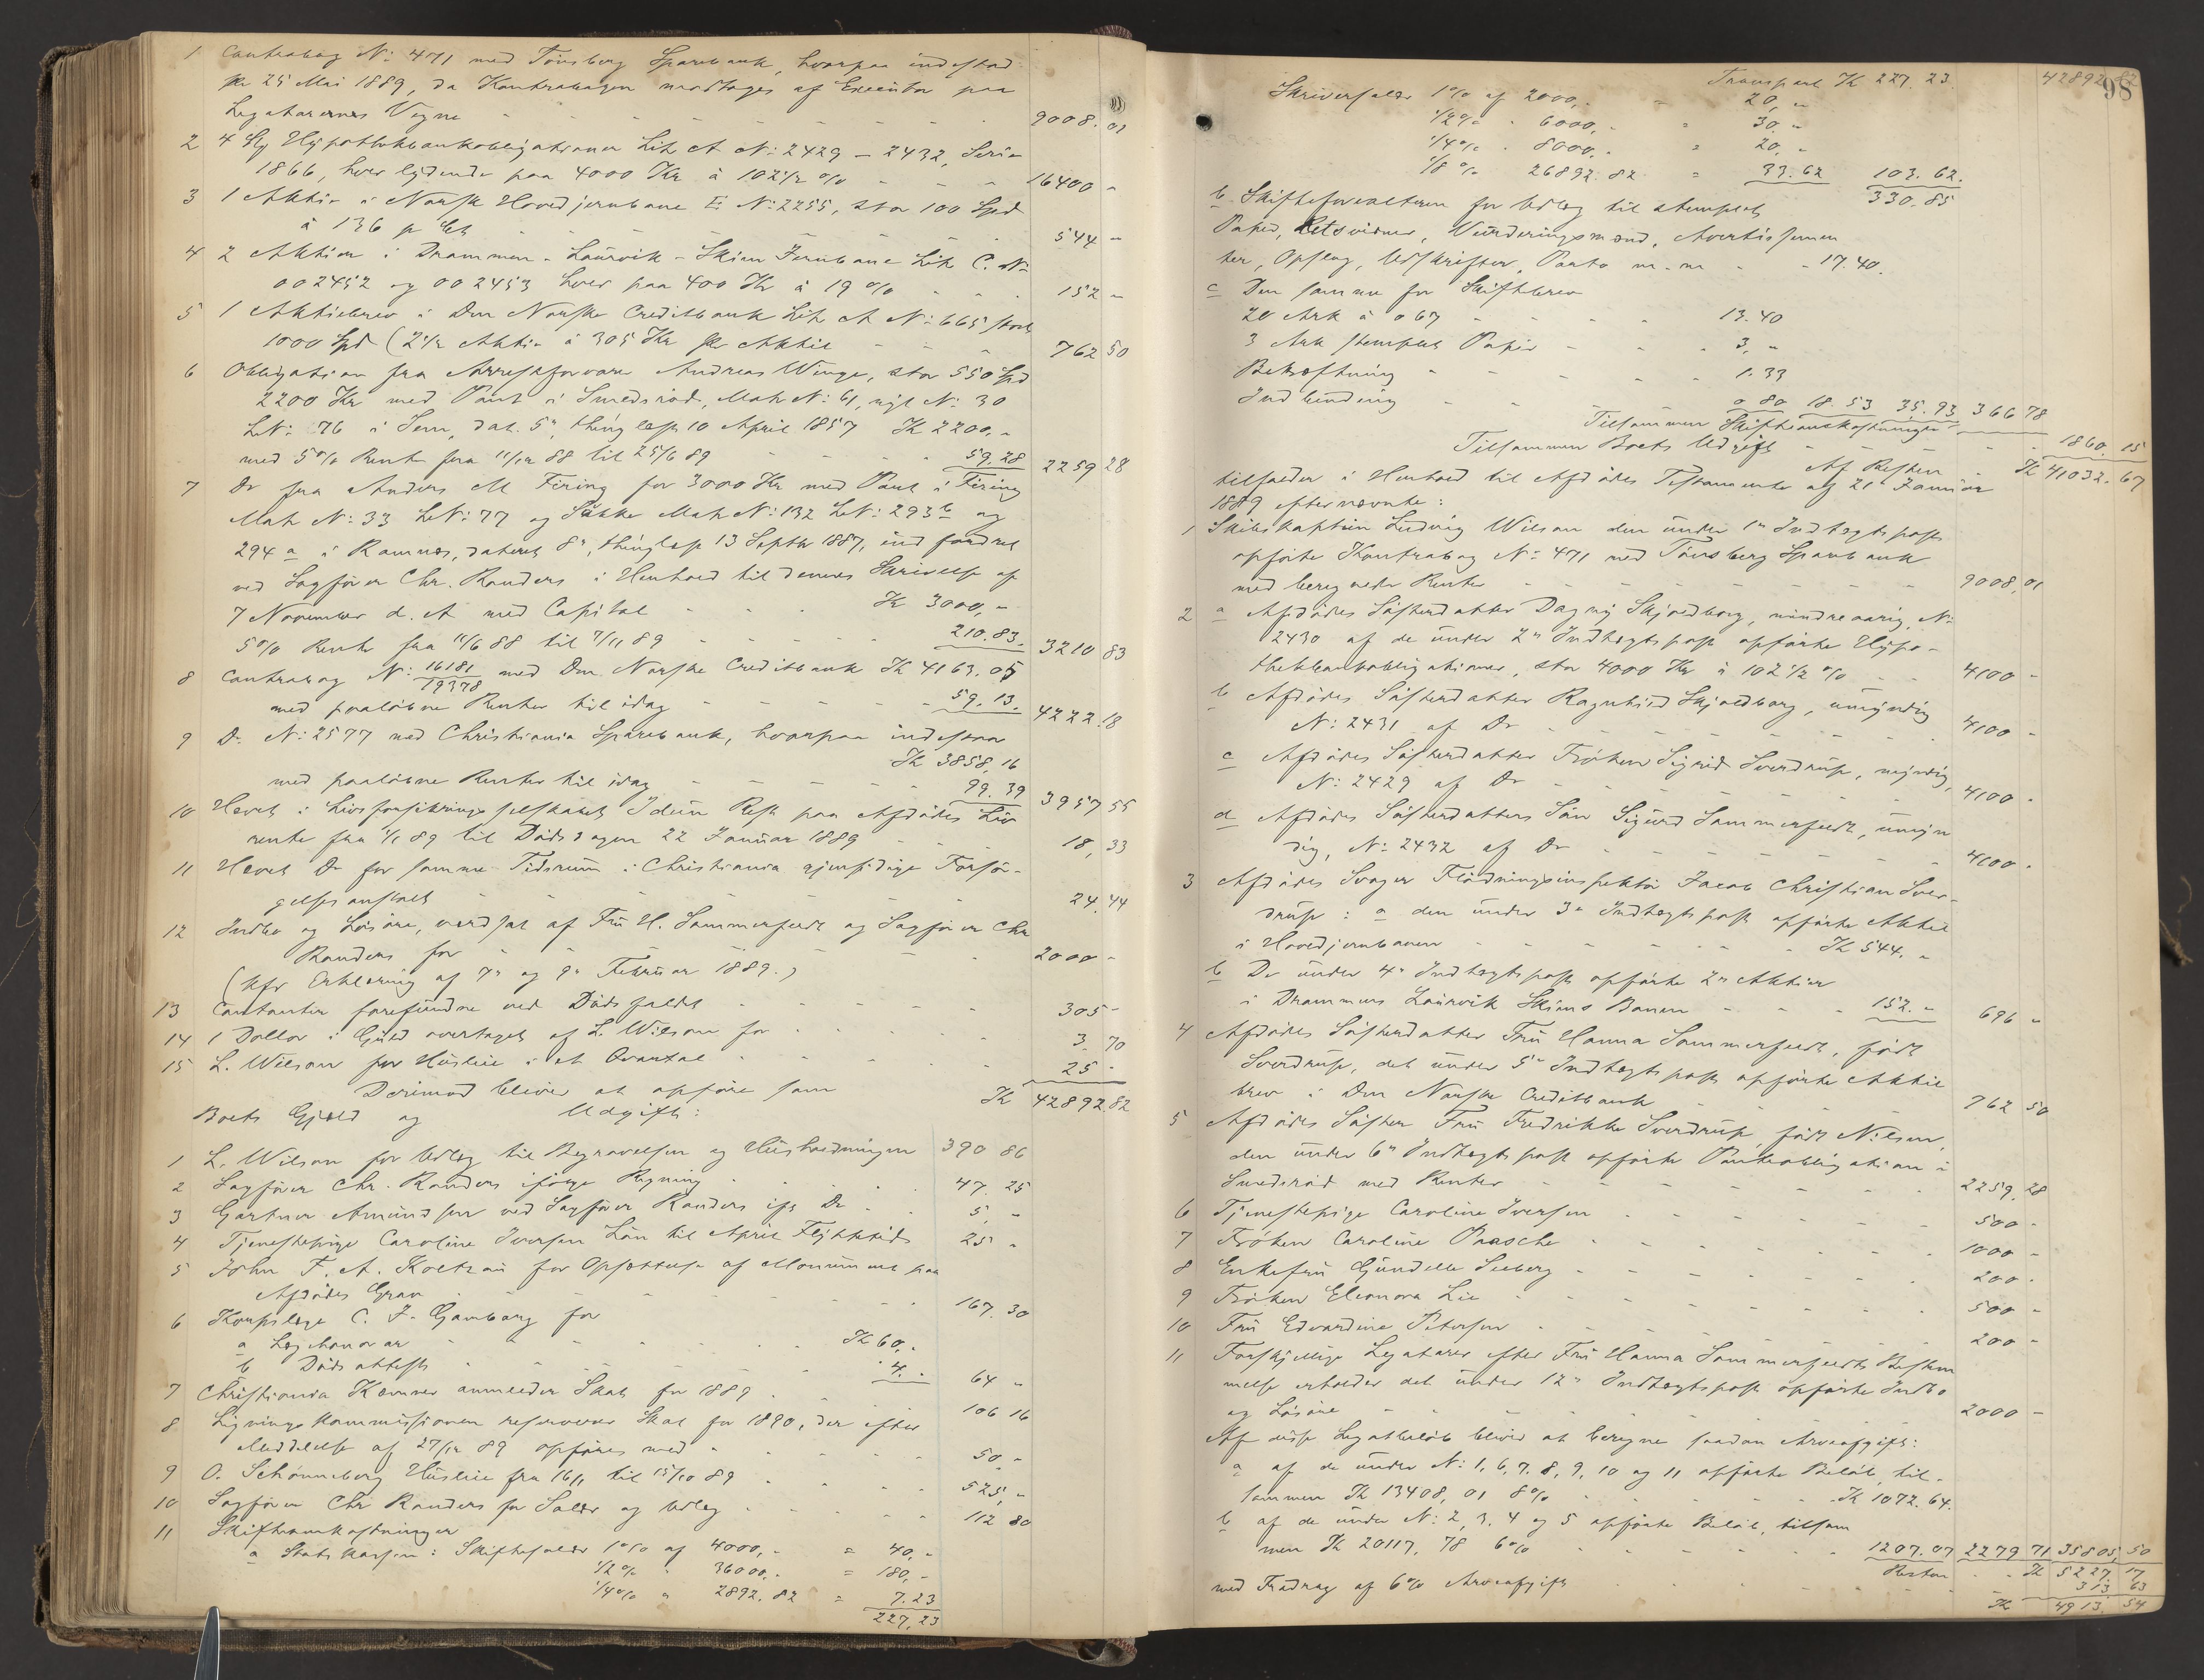 1 Contrabog No: 471 med Tönsberg Sparebank, hvorpaa indestod
pr 25 Mai 1889, da Kontrabogen modtoges af Executor paa
Legatarernes Vegne - - - 9008. 01
2 4 Stk Hypothekbankobligationer Litr A No: 2429 - 2432, Serie
1866, hver lydende paa 4000 Kr à 102 1/2 % - - - 16400 -
3 1 Aktie i Norsk Hovedjernbane E: No: 2255, stor 100 Spd
à 136 p Ct - - - 544 -
4 2 Aktier i Drammen - Laurvik - Skien Jernbane Litr C. No:
002452 og 002453 hver paa 400 Kr à 19 % - - - 152 -
5 1 Aktiebrev i Den Norske Creditbank Litr A No: 665 stort
1000 Spd (2 1/2 Aktie à 305 Kr pr Aktie - - - 762 50
6 Obligation fra Arrestforvarer Andreas Winge, stor 550 Spd
2200 Kr med Pant i Smedsröd, Matr No: 61, nyt No: 30
LNo: 76 i Sem, dat. 5te, thinglæst 10 April 1857 Kr 2200, -
med 5 % Rente fra 11/12 88 til 25/6 89 - - - 59. 28 2259 28
7 Do fra Anders M Firing for 3000 Kr med Pant i Firing
Matr No: 33 LNo: 77 og Matr No: 132 LNo: 293 b og
294 a i Ramnæs, dateret 8de, thinglæst 13 Septbr 1887, indfordret
ved Sagförer Chr. Randers i Henhold til dennes Skrivelse af
7 November d. A med Capital - - - Kr 3000, -
5 % Rente fra 11/6 88 til 7/11 89 - - - 210. 83. 3210 83
8 Contrabog No: 16181/19378 med Den Norske Creditbank Kr 4163. 05
med paalöbne Renter til idag - - - 59. 13. 4222. 18
9 Do No: 2577 med Christiania Sparebank, hvorpaa indestaar
Kr 3858, 16
med paalöbne Renter til idag - - - 99. 39 3957 55
10 Hævet i Livsforsikringsselskabet Idun Rest paa Afdödes Liv
rente fra 1/1 89 til Dödsdagen 22 Januar 1889 - - - 18, 33
11 Hævet Do for samme Tidsrum i Christiania gjensidige Forsör-
gelsesanstalt - - - 24. 44
12 Indbo og Lösöre, værdsat af Fru H. Sommerfeldt og Sagförer Chr
Randers for - - - 2000 -
(kfr Erklæring af 7de og 9de Februar 1889.)
13 Contanter forefundne ved Dödsfaldet - - - 305 -
14 1 Dollar i Guld overtaget af L. Wilson for - - - 3. 70
15 L. Wilson for Husleie i et Qvartal - - - 25 -
Kr 42892. 82
Derimod bliver at opföre som
Boets Gjæld og Udgift:
1 L. Wilson for Udlæg til Begravelsen og Husholdningen 390 86
2 Sagförer Chr. Randers ifölge Regning - - - 47. 25
3 Gartner Amundsen ved Sagförer Randers ifg Do - - 5, -
4 Tjenestepige Caroline Iversen Lön til April Flyttetid 25 -
5 John F. A. Koltzau for Opsættelse af Monument paa
Afdödes Grav - - - 167. 30
6 Korpslæge C. J. Gamborg for
a Lægehonorar - - - Kr 60, -
b Dödsattest - - - 4. - 64 -
7 Christiania Kæmner anmelder Skat for 1889 - - - 106 16
8 Ligningskommissionen reserverer Skat for 1890, der efter
Meddelelse af 27/12 89 opföres med - - - 50. -
9 O. Schönneberg Husleie fra 16/1 til 15/10 89 - - - 525, -
10 Sagförer Chr Randers for Salær og Udlæg - - - 112 80
11 Skifteomkostninger
a Statskassen: Skiftesalær 1 % af 4000, - = 40, -
1/2 % " 36000. - = 180, -
1/4 % " 2892. 82 = 7. 23
227, 23
98
Transport Kr 227. 23. 42892 82
Skriversalær 1 % af 2000, - = 20, -
1/2 % " 6000, - = 30. -
1/4 % " 8000. - = 20, -
1/8 % 26892. 82 = 33. 62 103. 62.
330. 85
b Skifteforvalteren for Udlæg til stemplet
Papir, Retsvidner, Vurderingsmænd, Avertissemen
ter, Opslag, Udskrifter, Porto m. m - - 17. 40.
c Den samme for Skiftebrev
20 Ark à 0 67 - - - 13. 40
3 Ark stemplet Papir - - - 3, -
Bekræftning - - - 1. 33
Indbinding - - - 0 80 18. 53 35. 93 366 78
Tilsammen Skifteomkostninger
Tilsammen Boets Udgift - - - 1860. 15
Af Resten - Kr 41032. 67
tilfalder i Henhold til Afdödes Testamente af 21de Januar
1889 efternævnte:
1 Skibskaptein Ludvig Wilson den under 1te Indtægtspost
opförte Kontrabog No: 471 med Tönsberg Sparebank
med beregnede Renter - - - 9008, 01
2 a Afdödes Sösterdatter Dagny Skjoldborg, mindreaarig, No:
2430 af de under 2den Indtægtspost opförte Hypo-
thekbankobligationer, stor 4000 Kr à 102 1/2 % - - 4100 -
b Afdödes Sösterdatter Ragnhild Skjoldborg, umyndig
No: 2431 af Do - - - 4100 -
c Afdödes Sösterdatter Fröken Sigrid Sverdrup, myndig,
No: 2429 af Do - - - 4100 -
d Afdödes Sösterdatters Sön Sigurd Sommerfeldt, umyn
dig, No: 2432 af Do - - - 4100 -
3 Afdödes Svoger Flödningsinspektör Jacob Christian Sver-
drup: a den under 3die Indtægtspost opförte Aktie
i Hovedjernbanen - - - Kr 544. -
b De under 4de Indtægtspost opförte 2de Aktier
i Drammens Laurvik Skiens Banen - - - 152. - 696 -
4 Afdödes Sösterdatter Fru Hanna Sommerfeldt, födt
Sverdrup, det under 5te Indtægtspost opförte Aktie
brev i Den Norske Creditbank - - - 762 50
5 Afdödes Söster Fru Fredrikke Sverdrup, födt Nilsen,
den under 6te Indtægtspost opförte Panteobligation i
Smedsröd med Renter - - - 2259. 28
6 Tjenestepige Caroline Iversen - - - 500 -
7 Fröken Caroline Paasche - - - 1000 -
8 Enkefru Gundelle Seeberg - - - 200 -
9 Fröken Eleonora Lie - - - 500 -
10 Fru Edvardine Petersen - - - 200 -
11 Forskjellige Legatarer efter Fru Hanna Sommerfeldts Bestem
melse erholder det under 12te Indtægtspost opförte Indbo
og Lösöre - - - 2000 -
Af disse Legatbelöb bliver at beregne saadan Arveafgift:
a af de under No: 1, 6, 7, 8, 9, 10 og 11 opförte Belöb, til-
sammen Kr 13408, 01 8 % - - - Kr 1072. 64.
b af de under No: 2, 3, 4 og 5 opförte Belöb, tilsam
men Kr 20117. 78 6 % - - - 1207. 07 2279 71 35805, 50
Resten - - Kr 5227. 17
med Fradrag af 6 % Arveafgift - - - 313 63
Kr 4913. 54